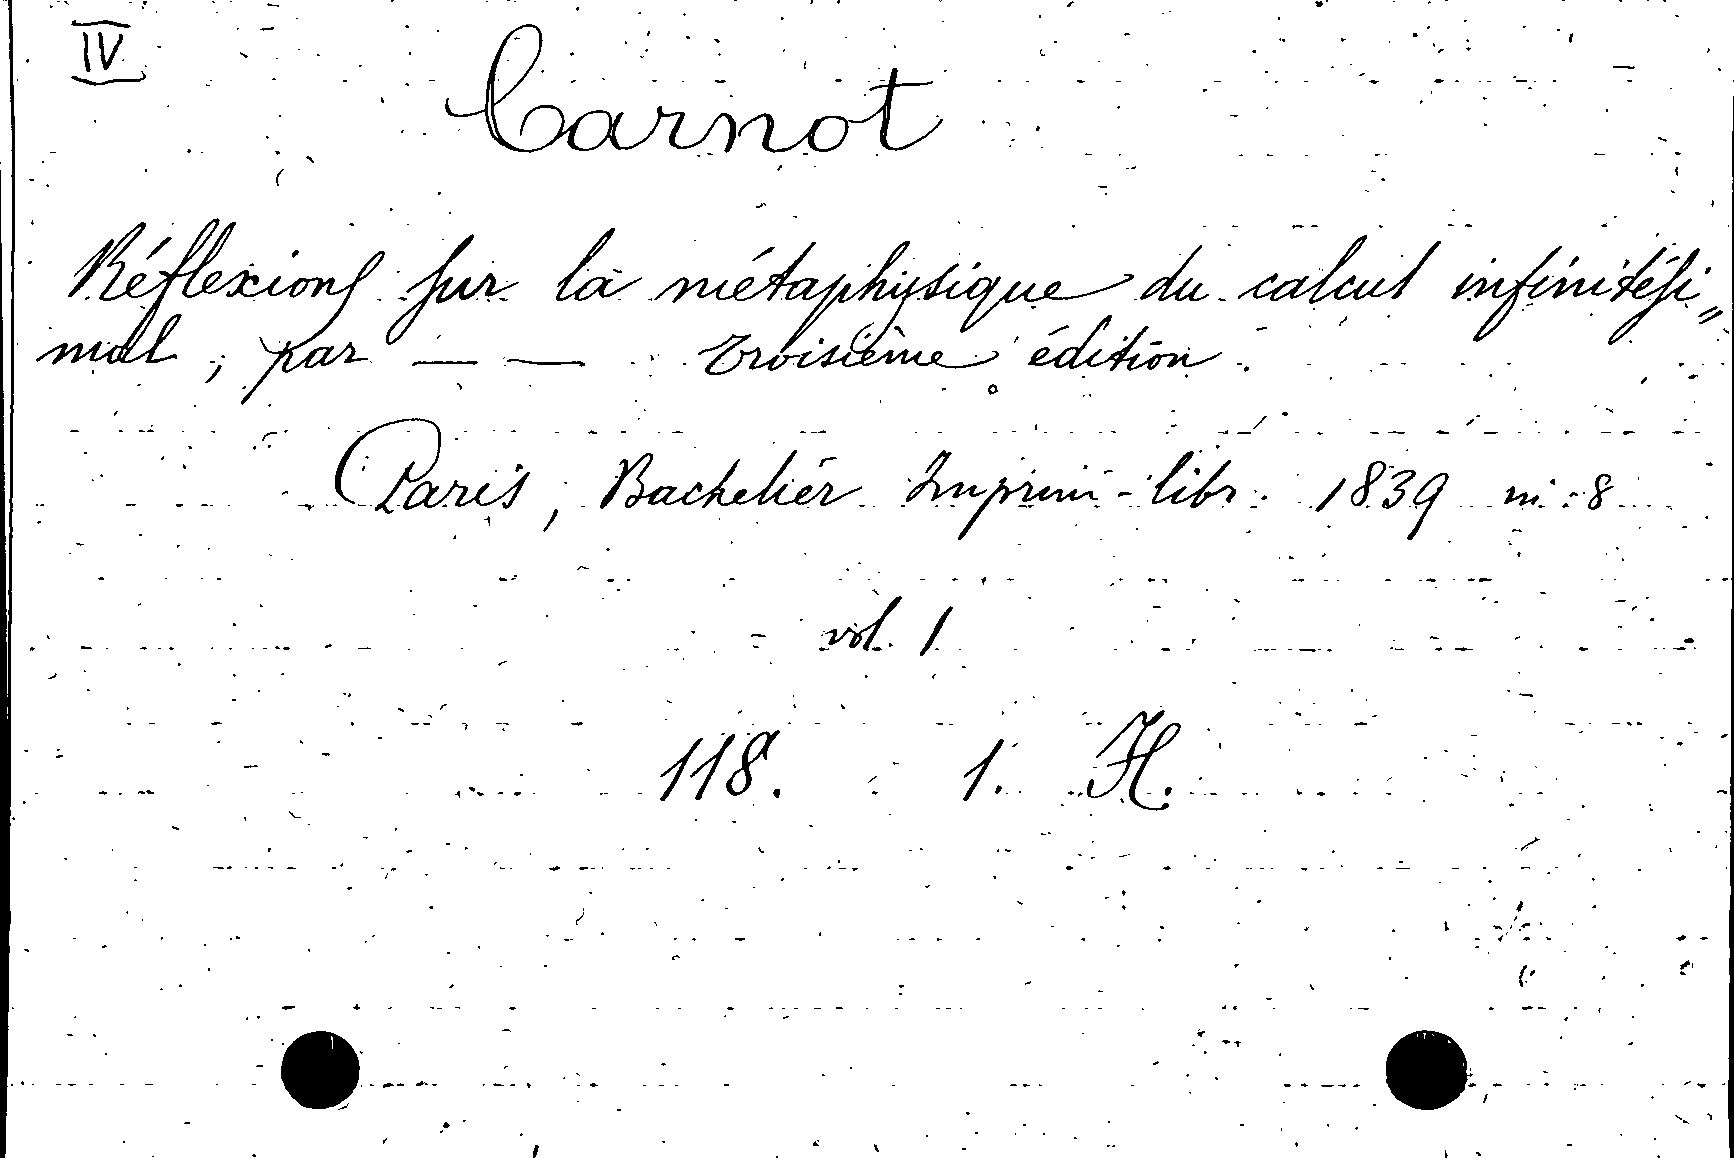 IV
Carnot
Réflexions sur la métaphysique du calcul infinitési„
mal, par — — troisième édition.
Paris, Bachelier Imprim-libr. 1839 in-8
vol. 1
118. 1. H.